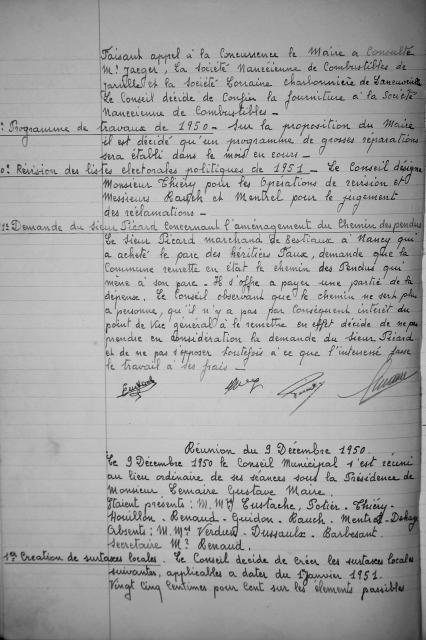 Faisant appel à la Concurrence le Maire a Consulté
Mr. Jaeger, la Société Nancéienne de Combustibles de
Jarville et la Société Lorraine charbonnière de
Le Conseil décide de Confier la fourniture à la Société
Nancéienne de Combustibles_
Programme de travaux de 1950_ Sur la proposition du Maire
il est décidé qu'un programme de grosses réparations
sera établi dans le mois en cours_
Révision des listes électorales politiques de 1951_ Le Conseil désigne
Monsieur Thiéry pour les Opérations de révision et
Messieurs Rauch et Mentrel pour le jugement
des réclamations_
Demande du sieur Picard concernant l'aménagement du Chemin des pendus
Le sieur Picard marchand de Bestiaux à Nancy qui
a acheté le parc des héritiers Faux, demande que la
Commune remette en état le chemin des Pendus qui
mène à son parc. Il s'offre à payer une partie de la
dépense. Le Conseil observant que le chemin ne sert plus
à personne, qu'il n'y a pas par conséquent intérêt du
point de vue général à le remettre en effet décide de ne pas
prendre en considération la demande du sieur Picard
et de ne pas s'opposer toutefois à ce que l'intéressé fasse
le travail à ses frais_
Réunion du 9 Décembre 1950.
Le 9 Décembre 1950 le Conseil Municipal s'est réuni
au lieu ordinaire de ses séances sous la Présidence de
Monsieur Lemaire Gustave Maire.
Étaient présents: M. Mrs Eustache, Potier_ Thiéry_
Houillon_ Renaud_ Guidon_ Rauch_ Mentrel_
Absents: M. Mrs Verdun_ Dussaulx_ Barbesant.
Secrétaire Mr. Renaud.
1º Création de surtaxes locales. Le Conseil décide de créer les surtaxes locales
suivantes, applicables à dater du 1 Janvier 1951.
Vingt Cinq Centimes pour Cent sur les éléments passibles